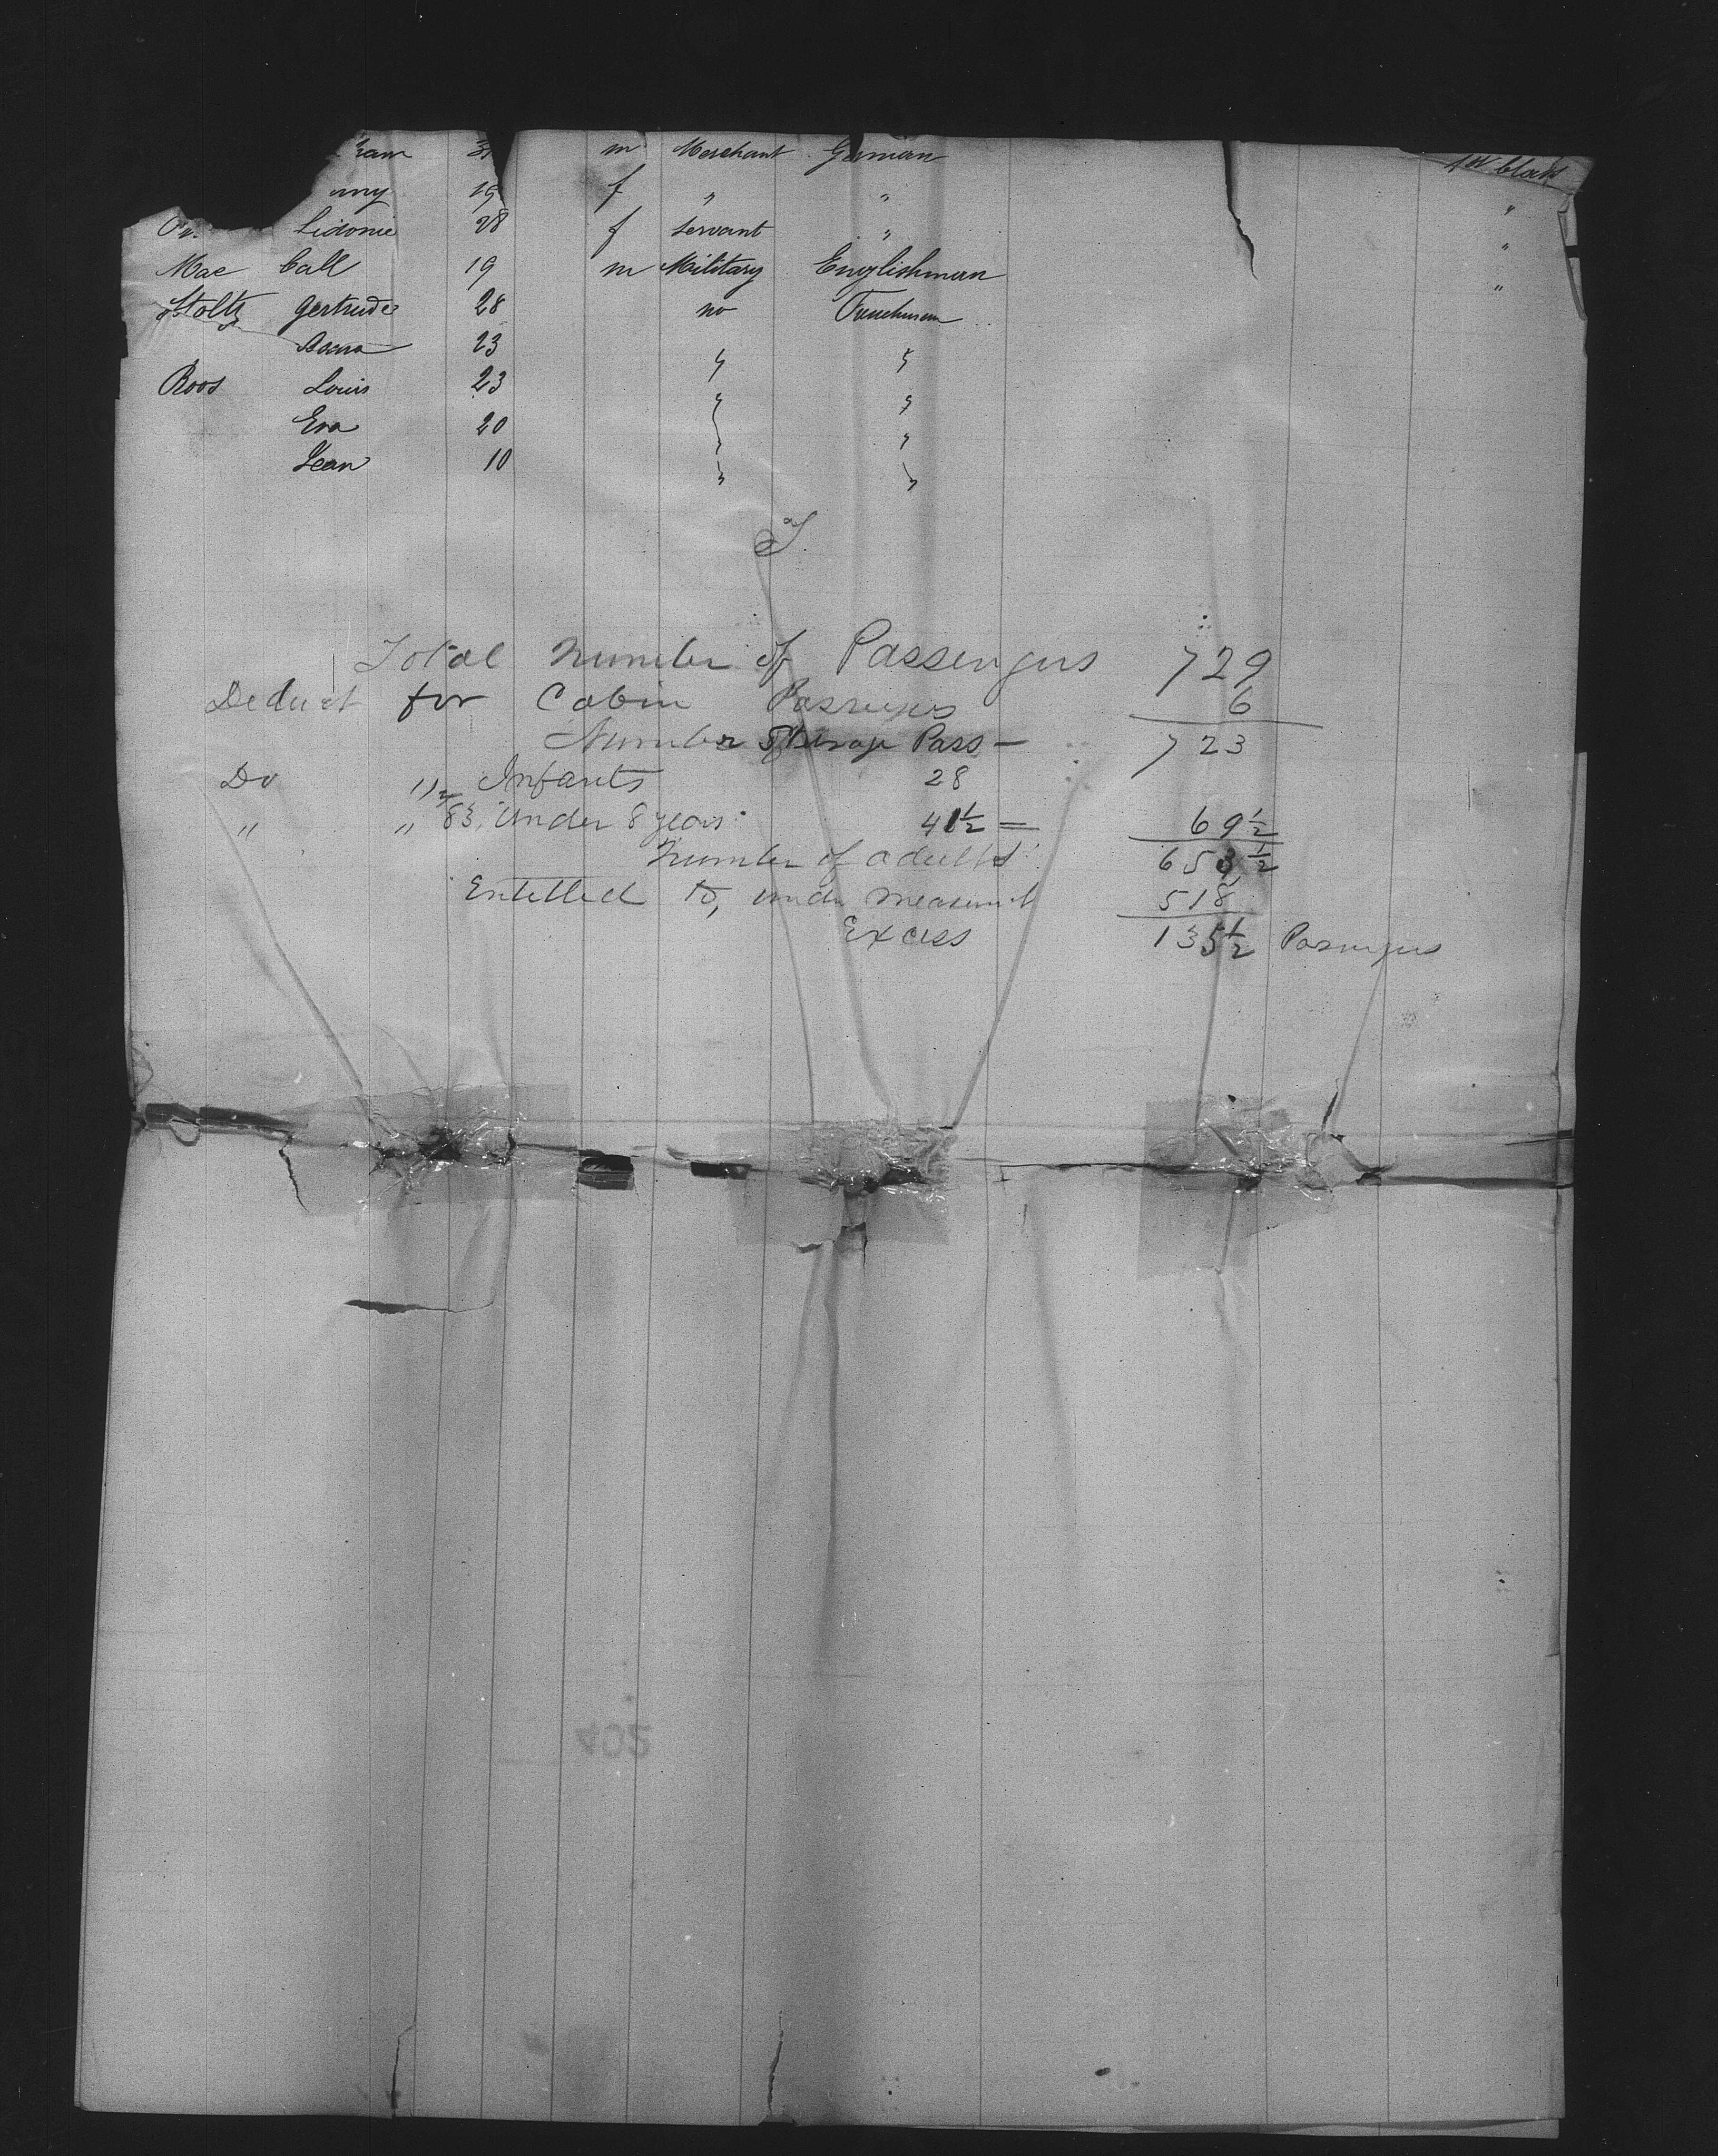 m Merchant German 1st Class
19 f " " "
Sidonie 28 f Servant " "
Mac Call 19 m Military Englishman "
Stoltz Gertrude 28 no Frenchman "
23 " "
Roos Louis 23 " "
Eva 20 " "
Jean 10 " "
Total Number of Passengers 729
Deduct for Cabin Passengers 6
Number Steerage Pass— 723
Do " Infants 28
" " 83, Under 8 years 41½ = 69½
Number of adults 653½
Entitled to, under measurmt 518
Excess 135½ Passengers
402